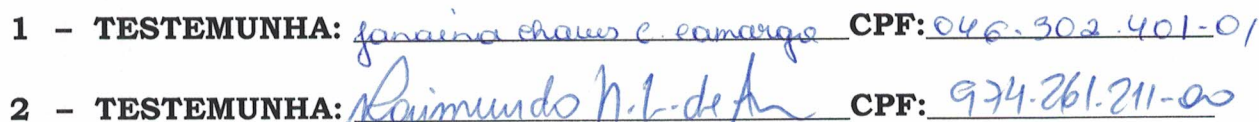 1 - TESTEMUNHA: Janaina chaves c. camargo CPF: 046.302.401-01
2 - TESTEMUNHA: Raimundo N. L. de CPF: 974.261.211-00